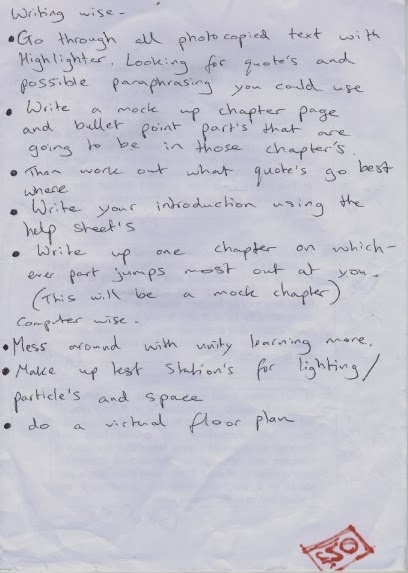 Writing wise -
• Go through all photocopied text with
Highlighter. Looking for quote's and
possible paraphrasing you could use
• Write a mock up chapter page
and bullet point part's that are
going to be in those chapter's.
• Then work out what quote's go best
where
• Write your introduction using the
help sheet's
• Write up one chapter on which-
ever part jumps most out at you.
(This will be a mock chapter)
Computer wise -
• Mess around with unity learning more.
• Make up test station's for lighting/
particle's and space
• do a virtual floor plan